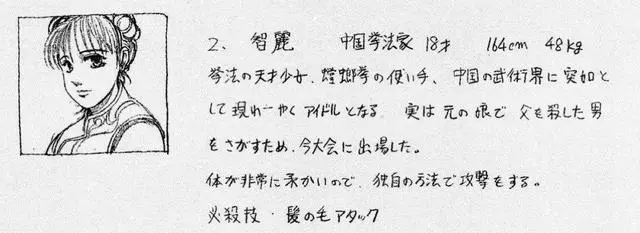 2、 智麗 中国拳法家 18才 164cm 48kg
拳法の天才少女、螳螂拳の使い手、中国の武術界に突如と
して現れ一やくアイドルとなる。実は元の娘で父を殺した男
をさがすため、今大会に出場した。
体が非常に柔かいので、独自の方法で攻撃をする。
必殺技・髪の毛アタック